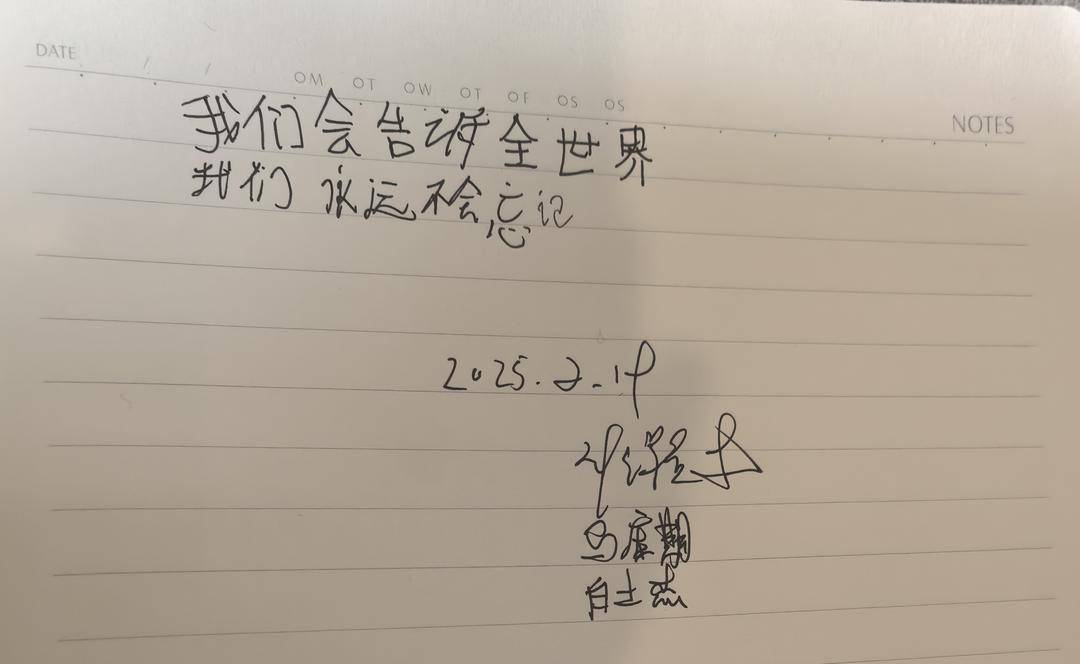 DATE / /
OM OT OW OT OF OS OS
NOTES
我们会告诉全世界
我们永远不会忘记
2025.2.19
马度
白士杰